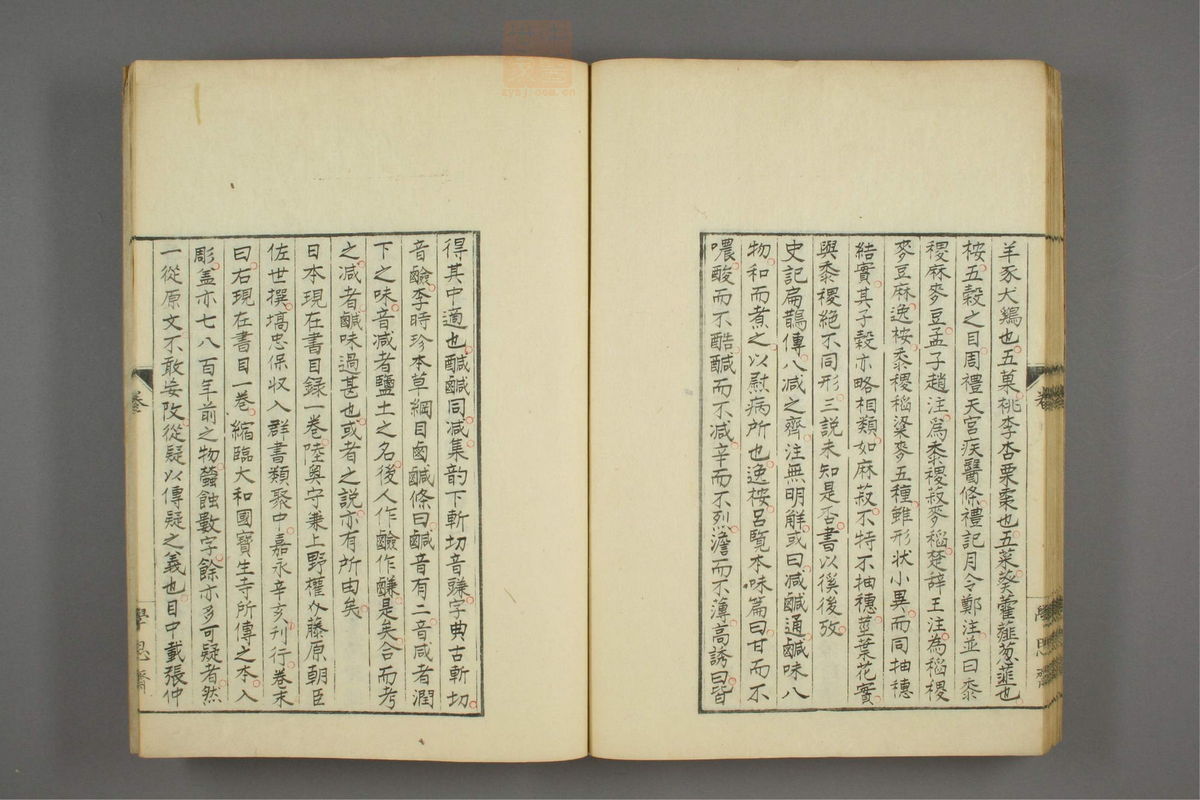 羊豕犬鷄也五菓桃李杏栗棗也五菜葵藿薤葱韮也
桉五穀之目周禮天官疾醫條禮記月令鄭注並曰黍
稷麻麥豆孟子趙注爲黍稷菽麥稻楚辭王注為稻稷
麥豆麻逸桉黍稷稻粱麥五種雖形状小異而同抽穗
結實其子穀亦略相類如麻菽不特不抽穗莖葉花實
與黍稷絶不同形三説未知是否書以徯後攷
史記扁鵲傳八減之齊注無明解或曰減鹹通鹹味八
物和而煮之以慰病所也逸桉呂覧本味篇曰甘而不
噥酸而不酷鹹而不減辛而不烈澹而不薄高誘曰皆
得其中適也醎鹹同減集韵下斬切音豏字典古斬切
音鹼李時珍本草綱目鹵鹹條曰鹹音有二音咸者潤
下之味音減者鹽土之名後人作鹼作䶢是矣合而考
之減者鹹味過甚也或者之説亦有所由矣
日本現在書目録一巻陸奥守兼上野權介藤原朝臣
佐世撰塙忠保収入群書類聚中嘉永辛亥刋行巻末
曰右現在書目一巻縮臨大和國寶生寺所傳之本入
彫盖亦七八百年前之物蟫蝕數字餘亦多可疑者然
一從原文不敢妄改從疑以傳疑之義也目中載張仲
學思齋